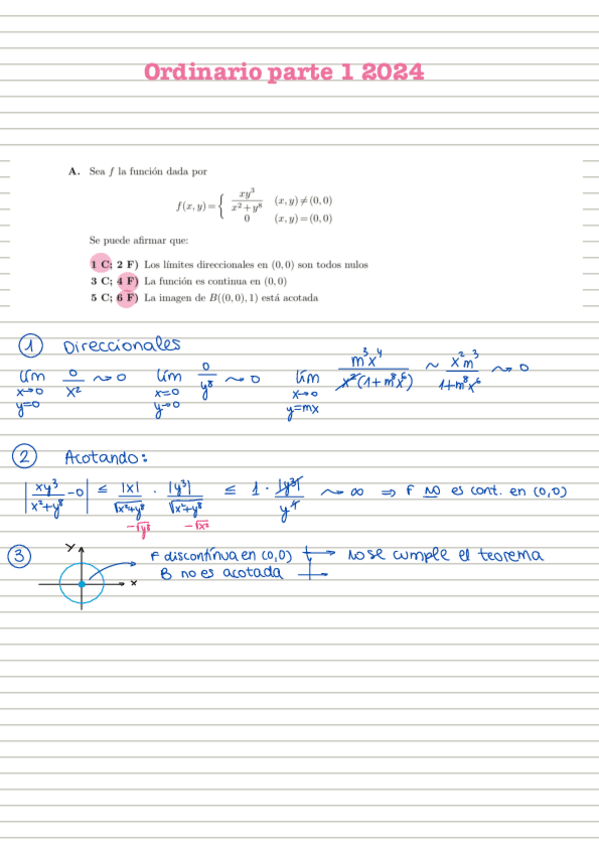 Ordinario parte 1 2024
A. Sea f la función dada por
f(x, y) = { xy³/(x² + y⁸) (x, y) ≠ (0, 0)
0 (x, y) = (0, 0)
Se puede afirmar que:
1 C; 2 F) Los límites direccionales en (0, 0) son todos nulos
3 C; 4 F) La función es continua en (0, 0)
5 C; 6 F) La imagen de B((0, 0), 1) está acotada
① Direccionales
lím x→0 y=0 0/x² ~> 0 lím x=0 y→0 0/y⁸ ~> 0 lím x→0 y=mx m³x⁴/(x²(1+m⁸x⁶)) ~ x²m³/(1+m⁸x⁶) ~> 0
② Acotando:
|xy³/(x²+y⁸) - 0| ≤ |x|/√(x²+y⁸) · |y³|/√(x²+y⁸) ≤ 1 · |y³|/y⁴ ~> ∞ ⇒ F NO es cont. en (0,0)
-√y⁸ -√x²
③ y x F discontínua en (0,0) → No se cumple el teorema
B no es acotada